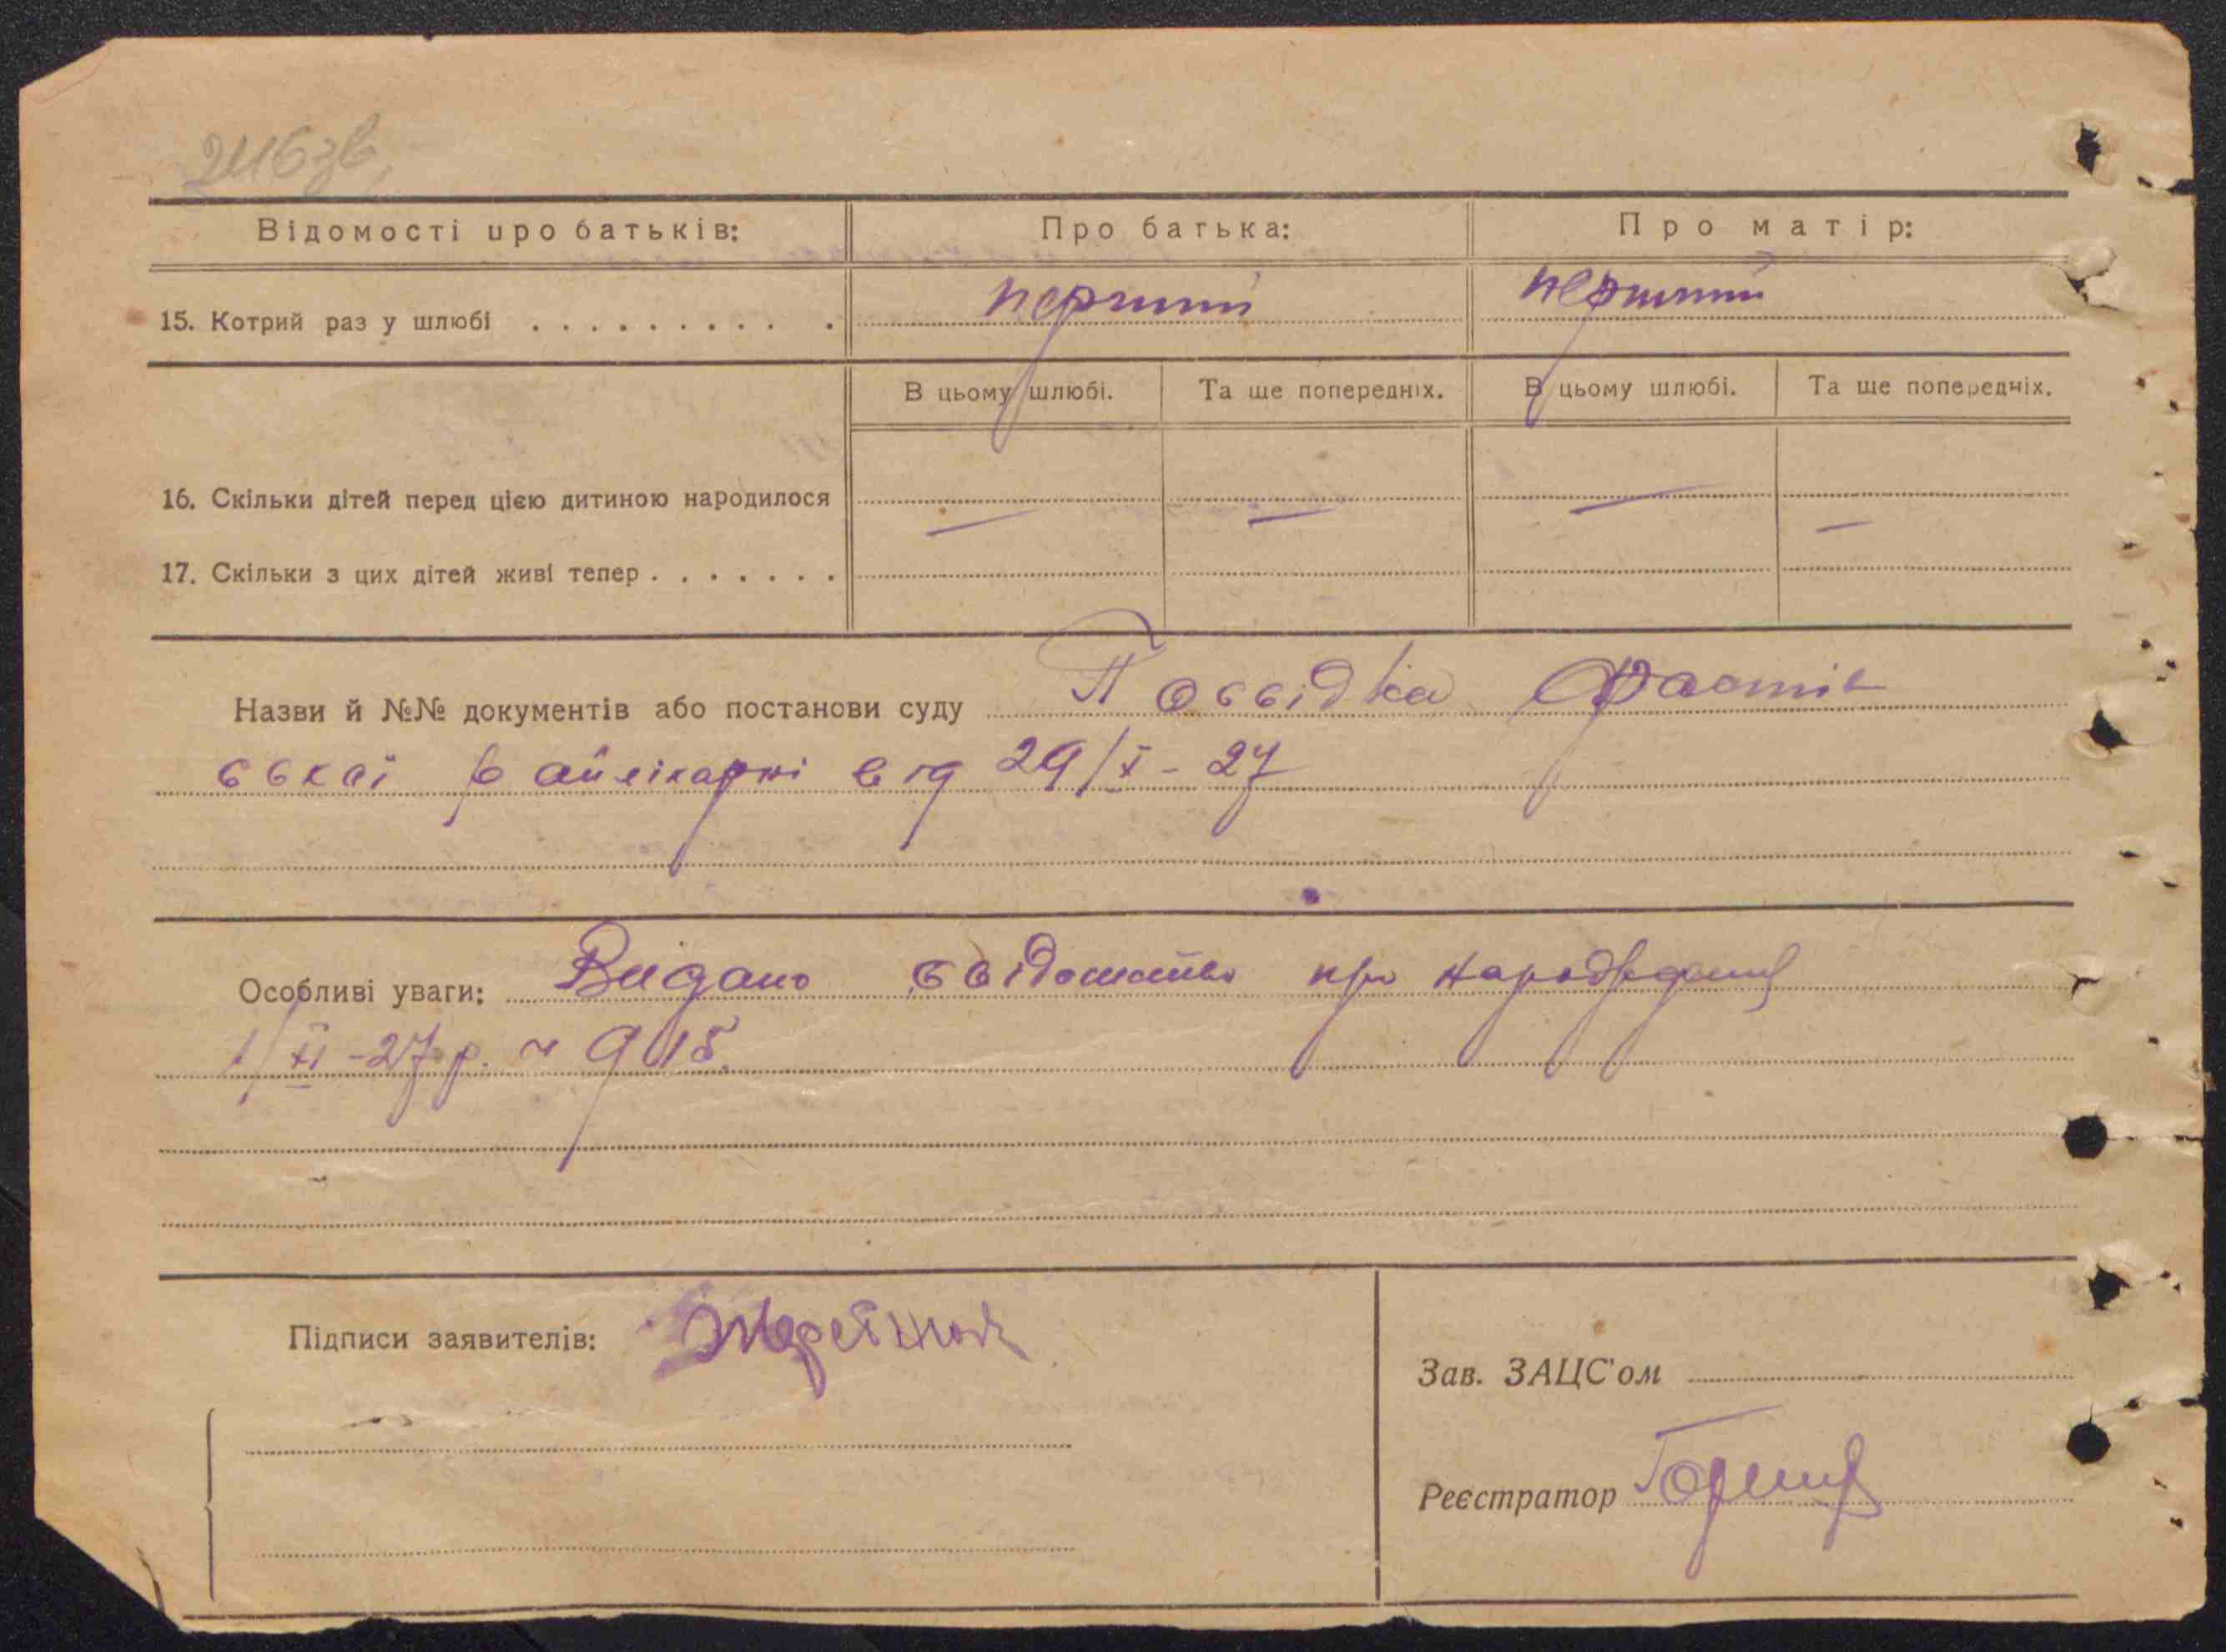 246зв.
Відомості про батьків: Про батька: Про матір:
15. Котрий раз у шлюбі . . . . . . . . . . перший перший
В цьому шлюбі. Та ще попередніх. В цьому шлюбі. Та ще попередніх.
16. Скільки дітей перед цією дитиною народилося — — — —
17. Скільки з цих дітей живі тепер . . . . . . .
Назви й №№ документів або постанови суду Посвідка Фастів
ської райлікарні від 29/X - 27
Особливі уваги: Видано свідоцтво про народження
1/XI - 27 р. ч 915.
Підписи заявителів:
Зав. ЗАЦС'ом
Реєстратор